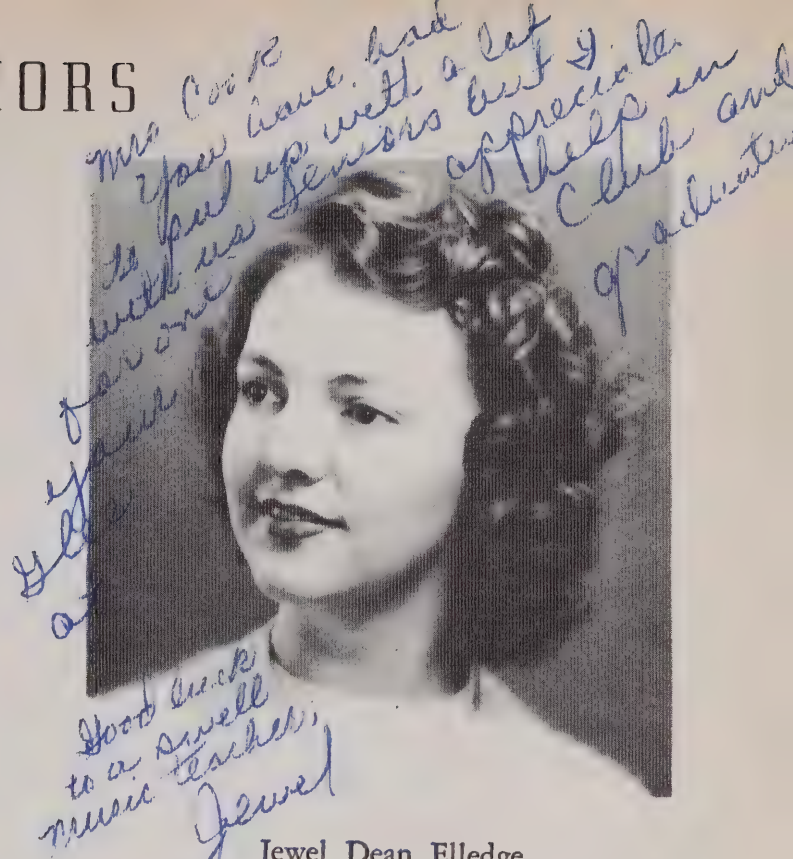 IORS
Mrs Cook
You have had
to put up with a lot
with us Seniors but I
for one appreciate
your help in
Glee Club and
at graduatio
Good luck
to a swell
music teacher,
Jewel
Jewel Dean Elledge